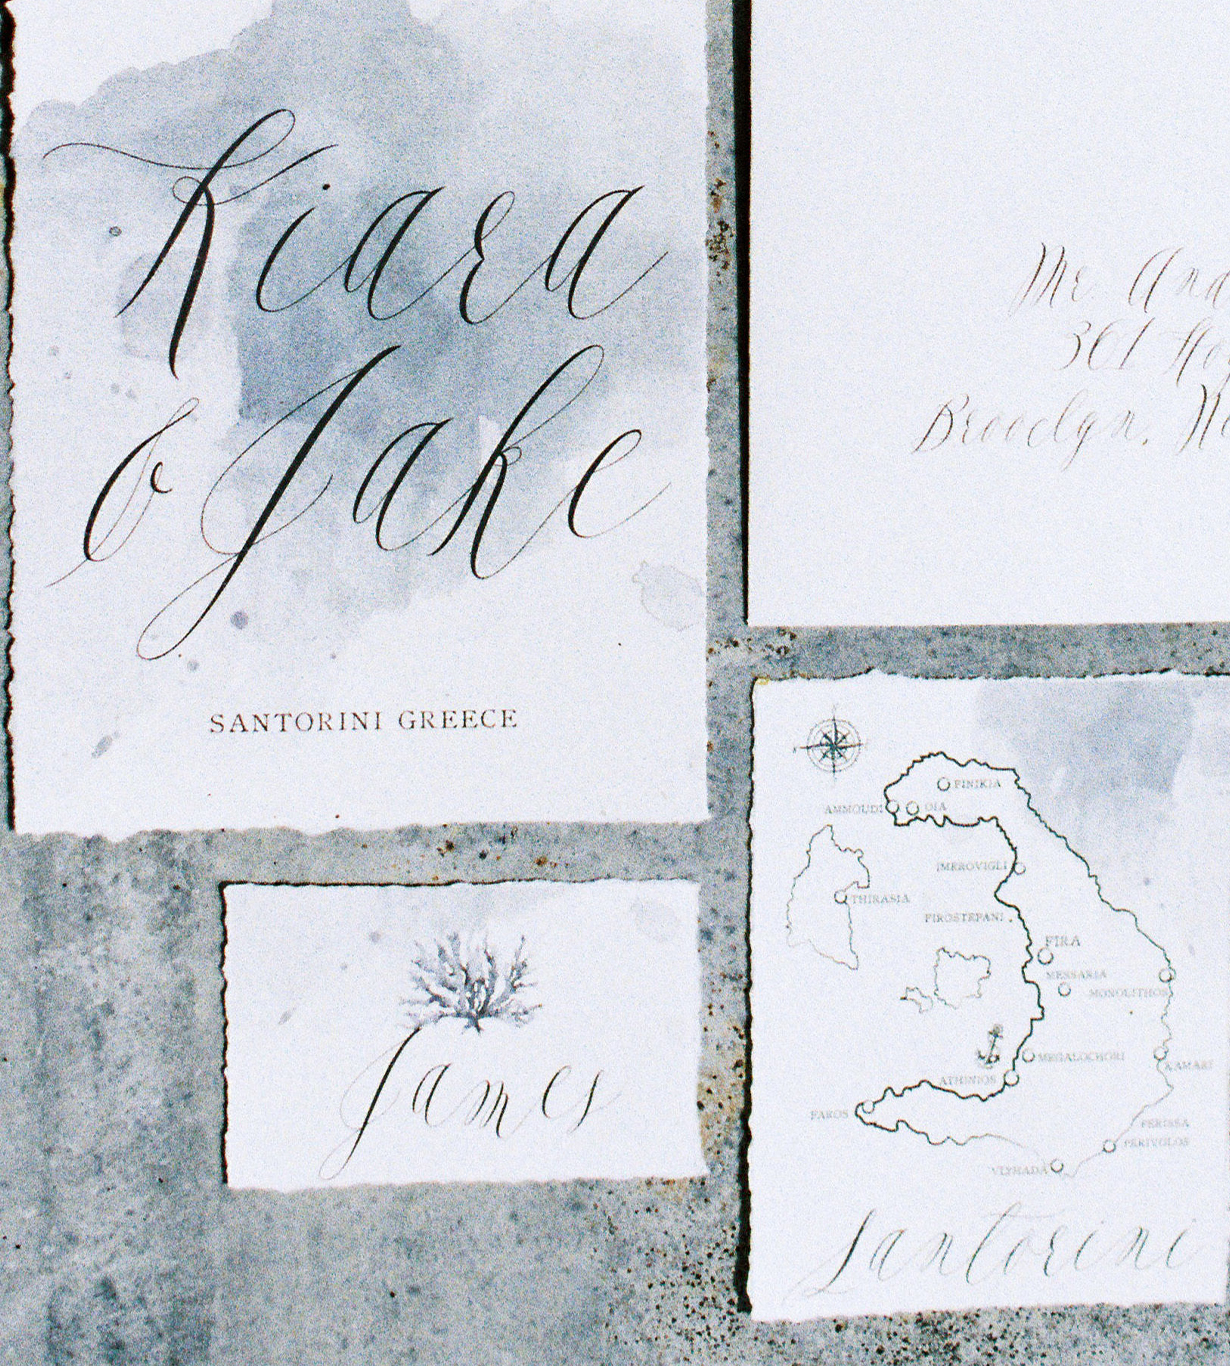 Kiara
& Jake
SANTORINI GREECE
Mr. And
301 Ho
Brooclyn, Ne
FINIKIA
AMMOUDI
OIA
IMEROVIGLI
THIRASIA
FIROSTEPANI
FIRA
MESSARIA
MONOLITHOS
MEGALOCHORI
KAMARI
ATHINIOS
FAROS
PERISSA
PERIVOLOS
VLYHADA
Santorini
James